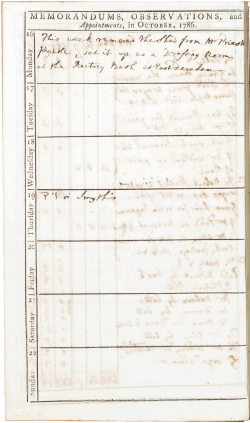 MEMORANDUMS, OBSERVATIONS, and
Appointments, in OCTOBER, 1786.
16
Monday
This week removed the shed from Mr
set it up as a Dressing Room
at the Rectory Bath
17
Tuesday
18
Wednesday
19
Thursday
Smyth's
20
Friday
21
Saturday
22
Sunday